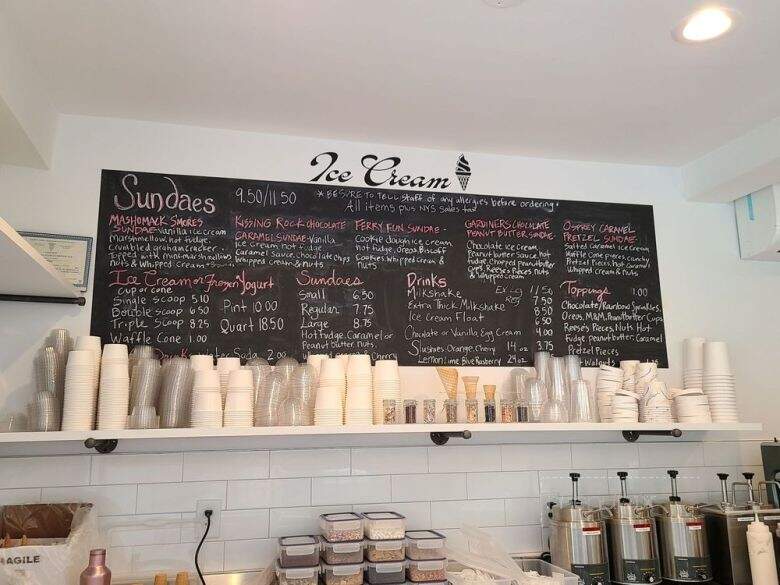 Ice Cream
Sundaes 9.50/11.50
* BE SURE TO TELL staff of any allergies before ordering
All items plus NYS sales tax
MASHOMACK SMORES
SUNDAE - vanilla ice cream
Marshmallow, hot fudge,
Crumbled graham cracker -
Topped with mini marshmallows
nuts & Whipped Cream
KISSING ROCK CHOCOLATE
CARAMEL SUNDAE - Vanilla
ice cream hot fudge
Caramel Sauce, chocolate chips
whipped cream & nuts
FERRY FUN SUNDAE -
Cookie dough ice cream
hot fudge, Oreos, Biscoff
Cookies, Whipped Cream &
nuts
GARDINERS CHOCOLATE
PEANUT BUTTER SUNDAE
Chocolate ice cream,
Peanut butter sauce, hot
fudge, Chopped peanut butter
cups, Reese's Pieces, nuts
& whipped cream
OSPREY CARAMEL
PRETZEL SUNDAE -
Salted Caramel ice cream
Waffle Cone pieces, crunchy
Pretzel Pieces, hot caramel
Whipped cream & nuts
Ice Cream or Frozen Yogurt
cup or cone
Single scoop 5.10
Double scoop 6.50
Triple Scoop 8.25
Waffle Cone 1.00
Pint 10.00
Quart 18.50
Sundaes
Small 6.50
Regular 7.75
Large 8.75
Hot fudge, Caramel or
Peanut butter sauce
Drinks
Milkshake
Ex Lg 11.50
Reg 7.50
Extra Thick Milkshake 8.50
Ice Cream Float 6.50
Chocolate or Vanilla Egg Cream 4.00
Slushies - Orange, Cherry 14 oz 3.75
Lemon Lime Blue Raspberry 24 oz
Toppings 1.00
Chocolate/Rainbow Sprinkles,
Oreos, M&M, Peanut butter Cups
Reese's Pieces, Nuts Hot
Fudge, Peanut butter, Caramel
Pretzel Pieces
Walnuts
Soda 2.00
Cherry
AGILE